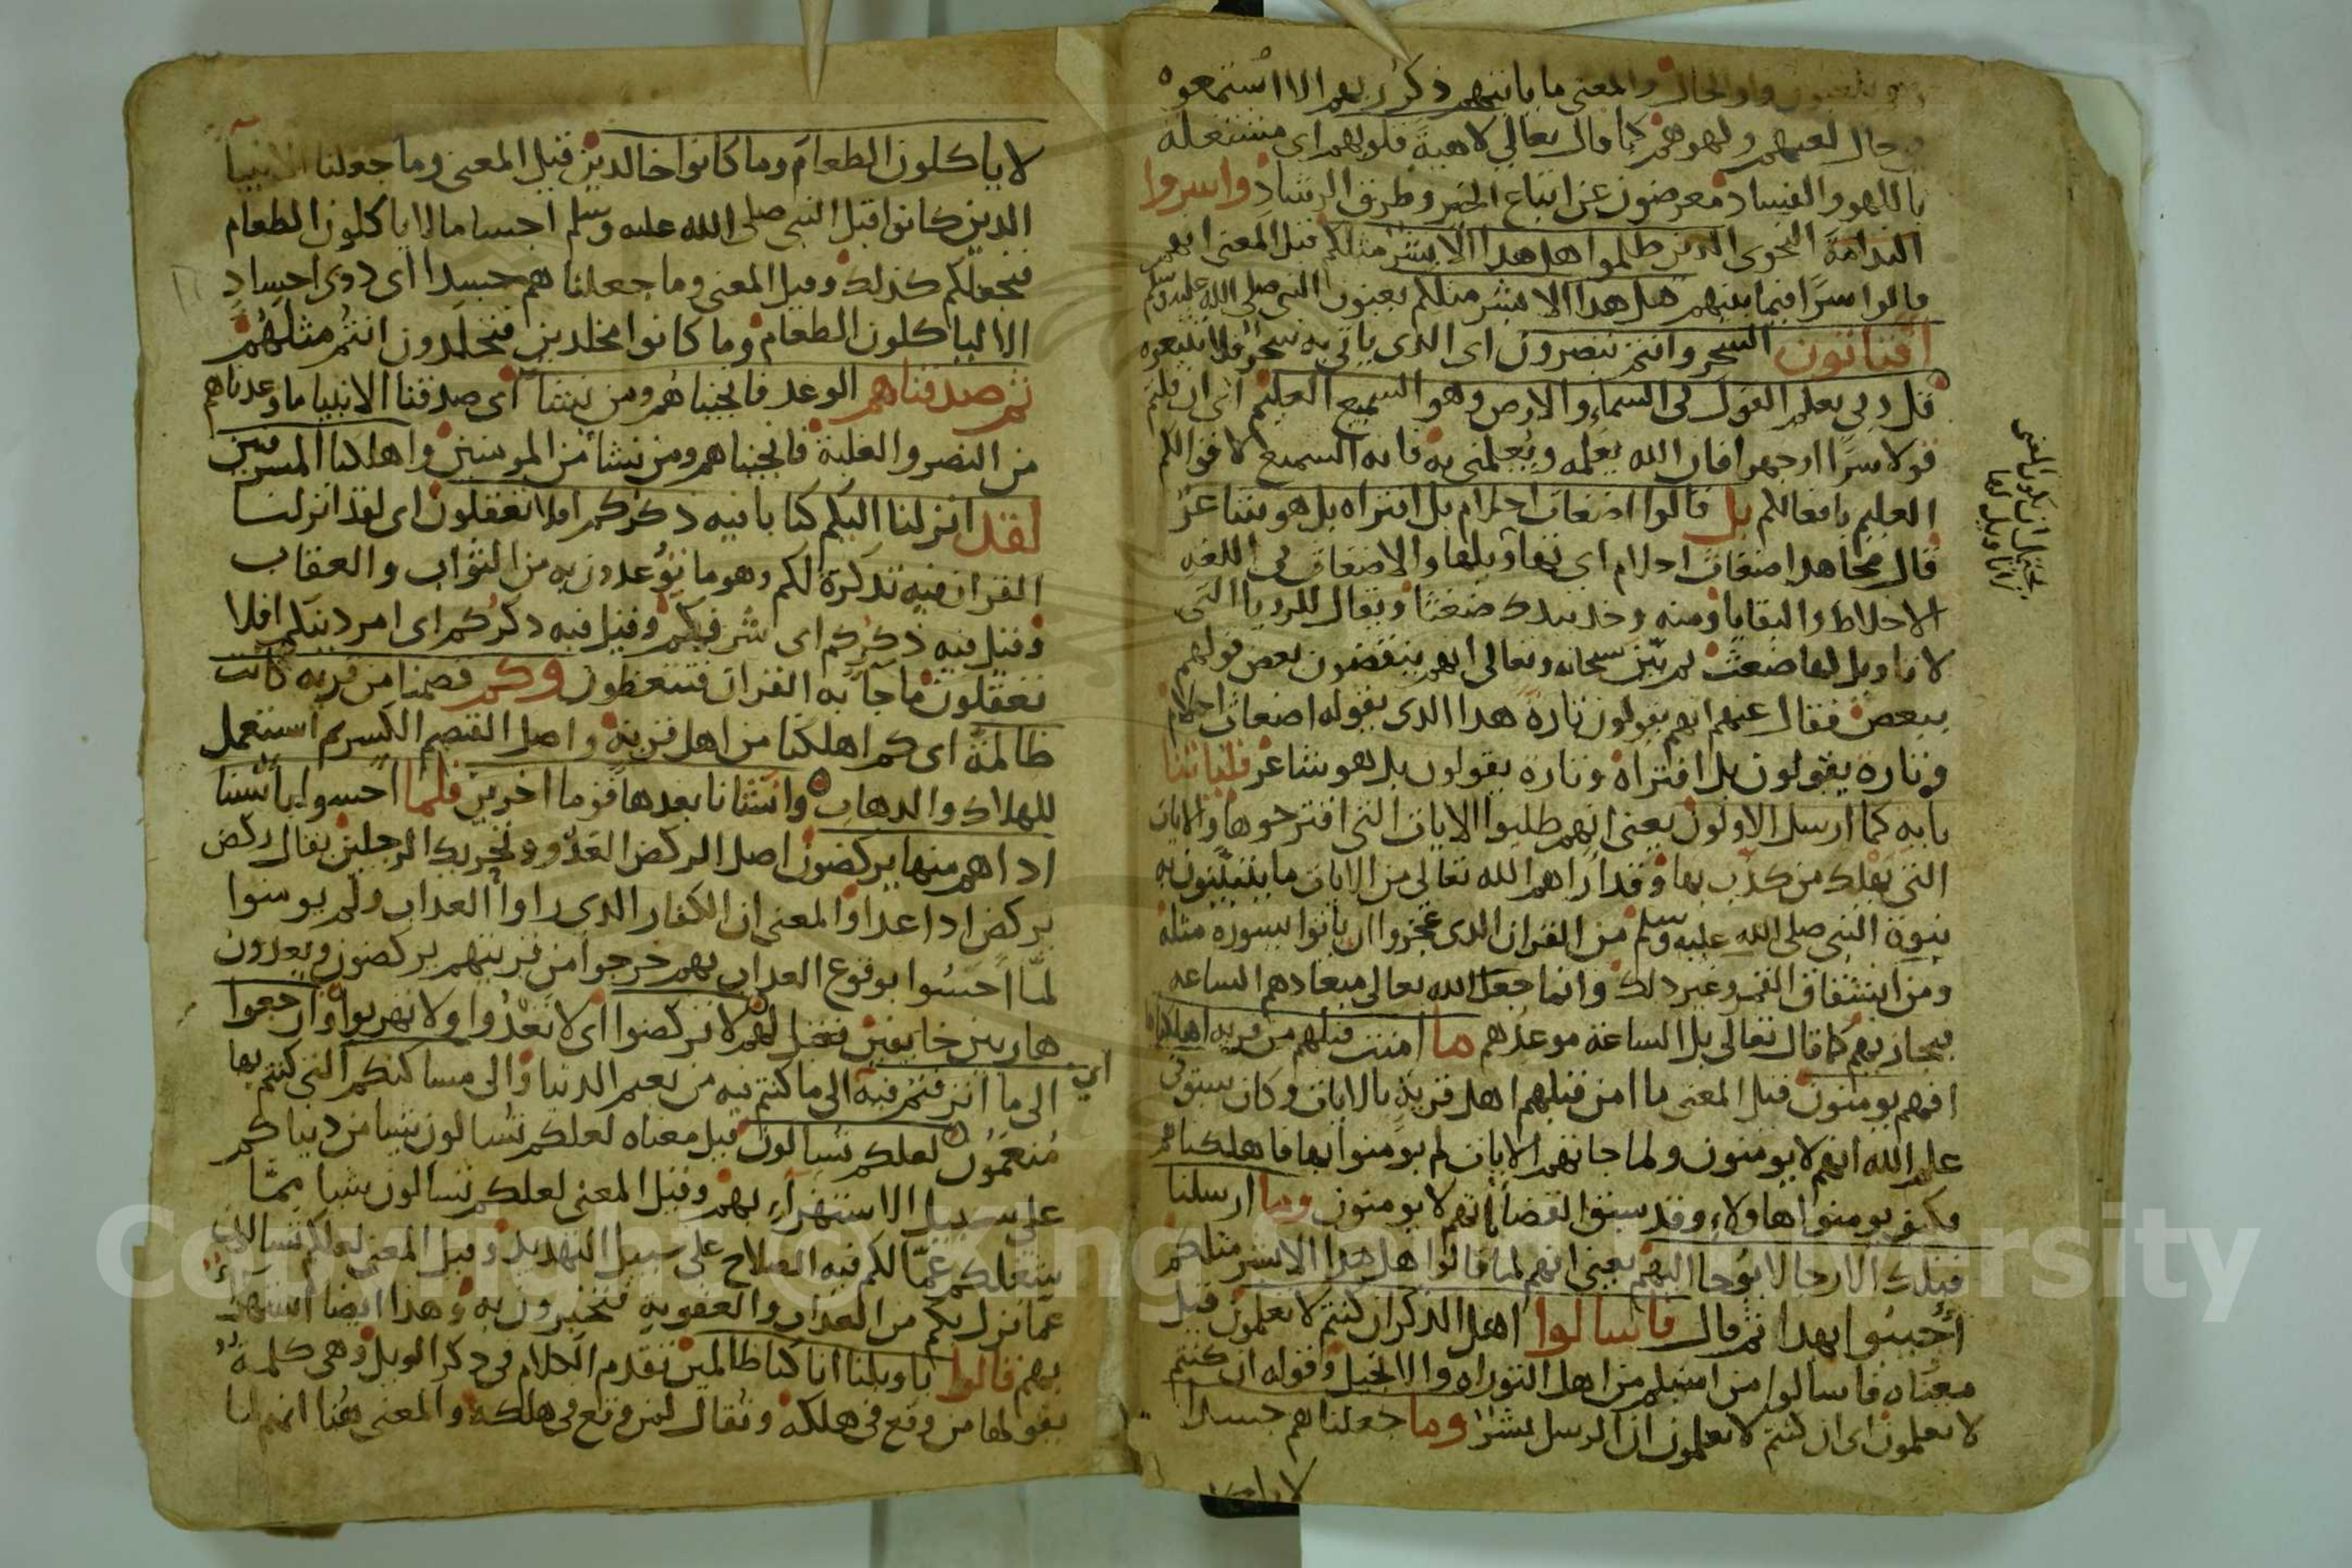 وهم يلعبون واو الحال والمعنى ما ياتيهم ذكر ربهم الا استمعوه
في حال لعبهم ولهوهم كما قال تعالى لاهية قلوبهم اى مشتغلة
باللهو والفساد معرضون عن اتباع الخير وطرق الرشاد واسروا
الندامة النجوى الذين ظلموا هل هذا الا بشر مثلكم قيل المعنى انهم
قالوا سرا فيما بينهم هل هذا الا بشر مثلكم يعنون النبى صلى الله عليه وسلم
افتاتون السحر وانتم تبصرون اى الذى ياتى به سحر فلا تتبعوه
قل ربي يعلم القول فى السماء والارض وهو السميع العليم اى ان قلتم
قولا سرا او جهرا فان الله يعلمه ويعلمنى به فانه السميع لاقوالكم
العليم بافعالكم بل قالوا اضغاث احلام بل افتراه بل هو شاعر
قال مجاهد اضغاث احلام اى تهاويلها والاضغاث فى اللغه
الاخلاط والبقايا ومنه وخذ بيدك ضغثا ويقال للرويا التى
لا تاويل لها ضغث ثم بين سبحانه وتعالى انهم ينقضون بعض قولهم
ببعض فقال عنهم انهم يقولون تارة هذا الذى يقوله اضغاث احلام
وتارة يقولون بل افتراه وتارة يقولون بل هو شاعر فلياتنا
باية كما ارسل الاولون يعنى انهم طلبوا الايات التى اقترحوها والايات
التى يهلك من كذب بها وقد اراهم الله تعالى من الايات ما يتبينون به
نبوة النبى صلى الله عليه وسلم من القران الذى عجزوا ان ياتوا بسورة مثله
ومن انشقاق القمر وغير ذلك وانما جعل الله تعالى ميعادهم الساعه
فيجازيهم كما قال تعالى بل الساعة موعدهم ما امنت قبلهم من قرية اهلكناها
افهم يومنون قيل المعنى ما امن قبلهم اهل قرية بالايات وكان سبق فى
علم الله انهم لا يومنون ولما جاتهم الايات لم يومنوا بها فاهلكناهم
فكيف يومنوا هاولاء وقد سبق القضا انهم لا يومنون وما ارسلنا
قبلك الا رجالا يوحا اليهم يعنى انهم لما قالوا هل هذا الا بشر مثلكم
أجيبوا بهذا ثم قال فاسالوا اهل الذكر ان كنتم لا تعلمون قيل
معناه فاسالوا من اسلم من اهل التوراه والانجيل وقوله ان كنتم
لا تعلمون اى ان كنتم لا تعلمون ان الرسل بشر وما جعلناهم جسدا
لا ياكلون الطعام وما كانوا خالدين قيل المعنى وما جعلنا الانبيآ
الذين كانوا قبل النبى صلى الله عليه وسلم اجساما لا ياكلون الطعام
فنجعلكم كذلك وقيل المعنى وما جعلناهم جسدا اى ذوى اجساد
الا لياكلون الطعام وما كانوا مخلدين فتخلدون انتم مثلهم
ثم صدقناهم الوعد فانجيناهم ومن نشا اى صدقنا الانبيا ما وعدناهم
من النصر والغلبة فانجيناهم ومن نشا من المومنين واهلكنا المسرفين
لقد انزلنا اليكم كتابا فيه ذكركم افلا تعقلون اى لقد انزلنا
القران فيه تذكرة لكم وهو ما توعدون به من الثواب والعقاب
وقيل فيه ذكركم اى شرفكم وقيل فيه ذكركم اى امر دينكم افلا
تعقلون ما جآ به القران فتتعظون وكم قصمنا من قرية كانت
ظالمة اى كم اهلكنا من اهل قرية واصل القصم الكسر ثم استعمل
للهلاك والذهاب وانشانا بعدها قوما اخرين فلما احسوا باسنا
اذا هم منها يركضون اصل الركض العدو وتحريك الرجلين يقال ركض
يركض اذا عدا والمعنى ان الكفار الذى راوا العذاب ولم يومنوا
لما احسوا بوقوع العذاب بهم خرجوا من قريتهم يركضون ويعدون
هاربين خايفين فقيل لهم لا تركضوا اى لا تعدوا ولا تهربوا وارجعوا
الى ما اترفتم فيه اى الى ما كنتم فيه من نعيم الدنيا والى مساكنكم التى كنتم بها
منعمون لعلكم تسالون قيل معناه لعلكم تسالون شيا من دنياكم
على سبيل الاستهزآء بهم وقيل المعنى لعلكم تسالون شيا مما
يشغلكم عما لكم فيه الصلاح على سبيل التهديد وقيل المعنى لعلكم تسالون
عما نزل بكم من العذاب والعقوبة فتخبرون به وهذا ايضا استهزاء
بهم قالوا ياويلنا انا كنا ظالمين تقدم الكلام فى ذكر الويل وهى كلمة
يقولها من وقع فى هلكة وتقال لمن وقع فى هلكة والمعنى هنا انهم لما